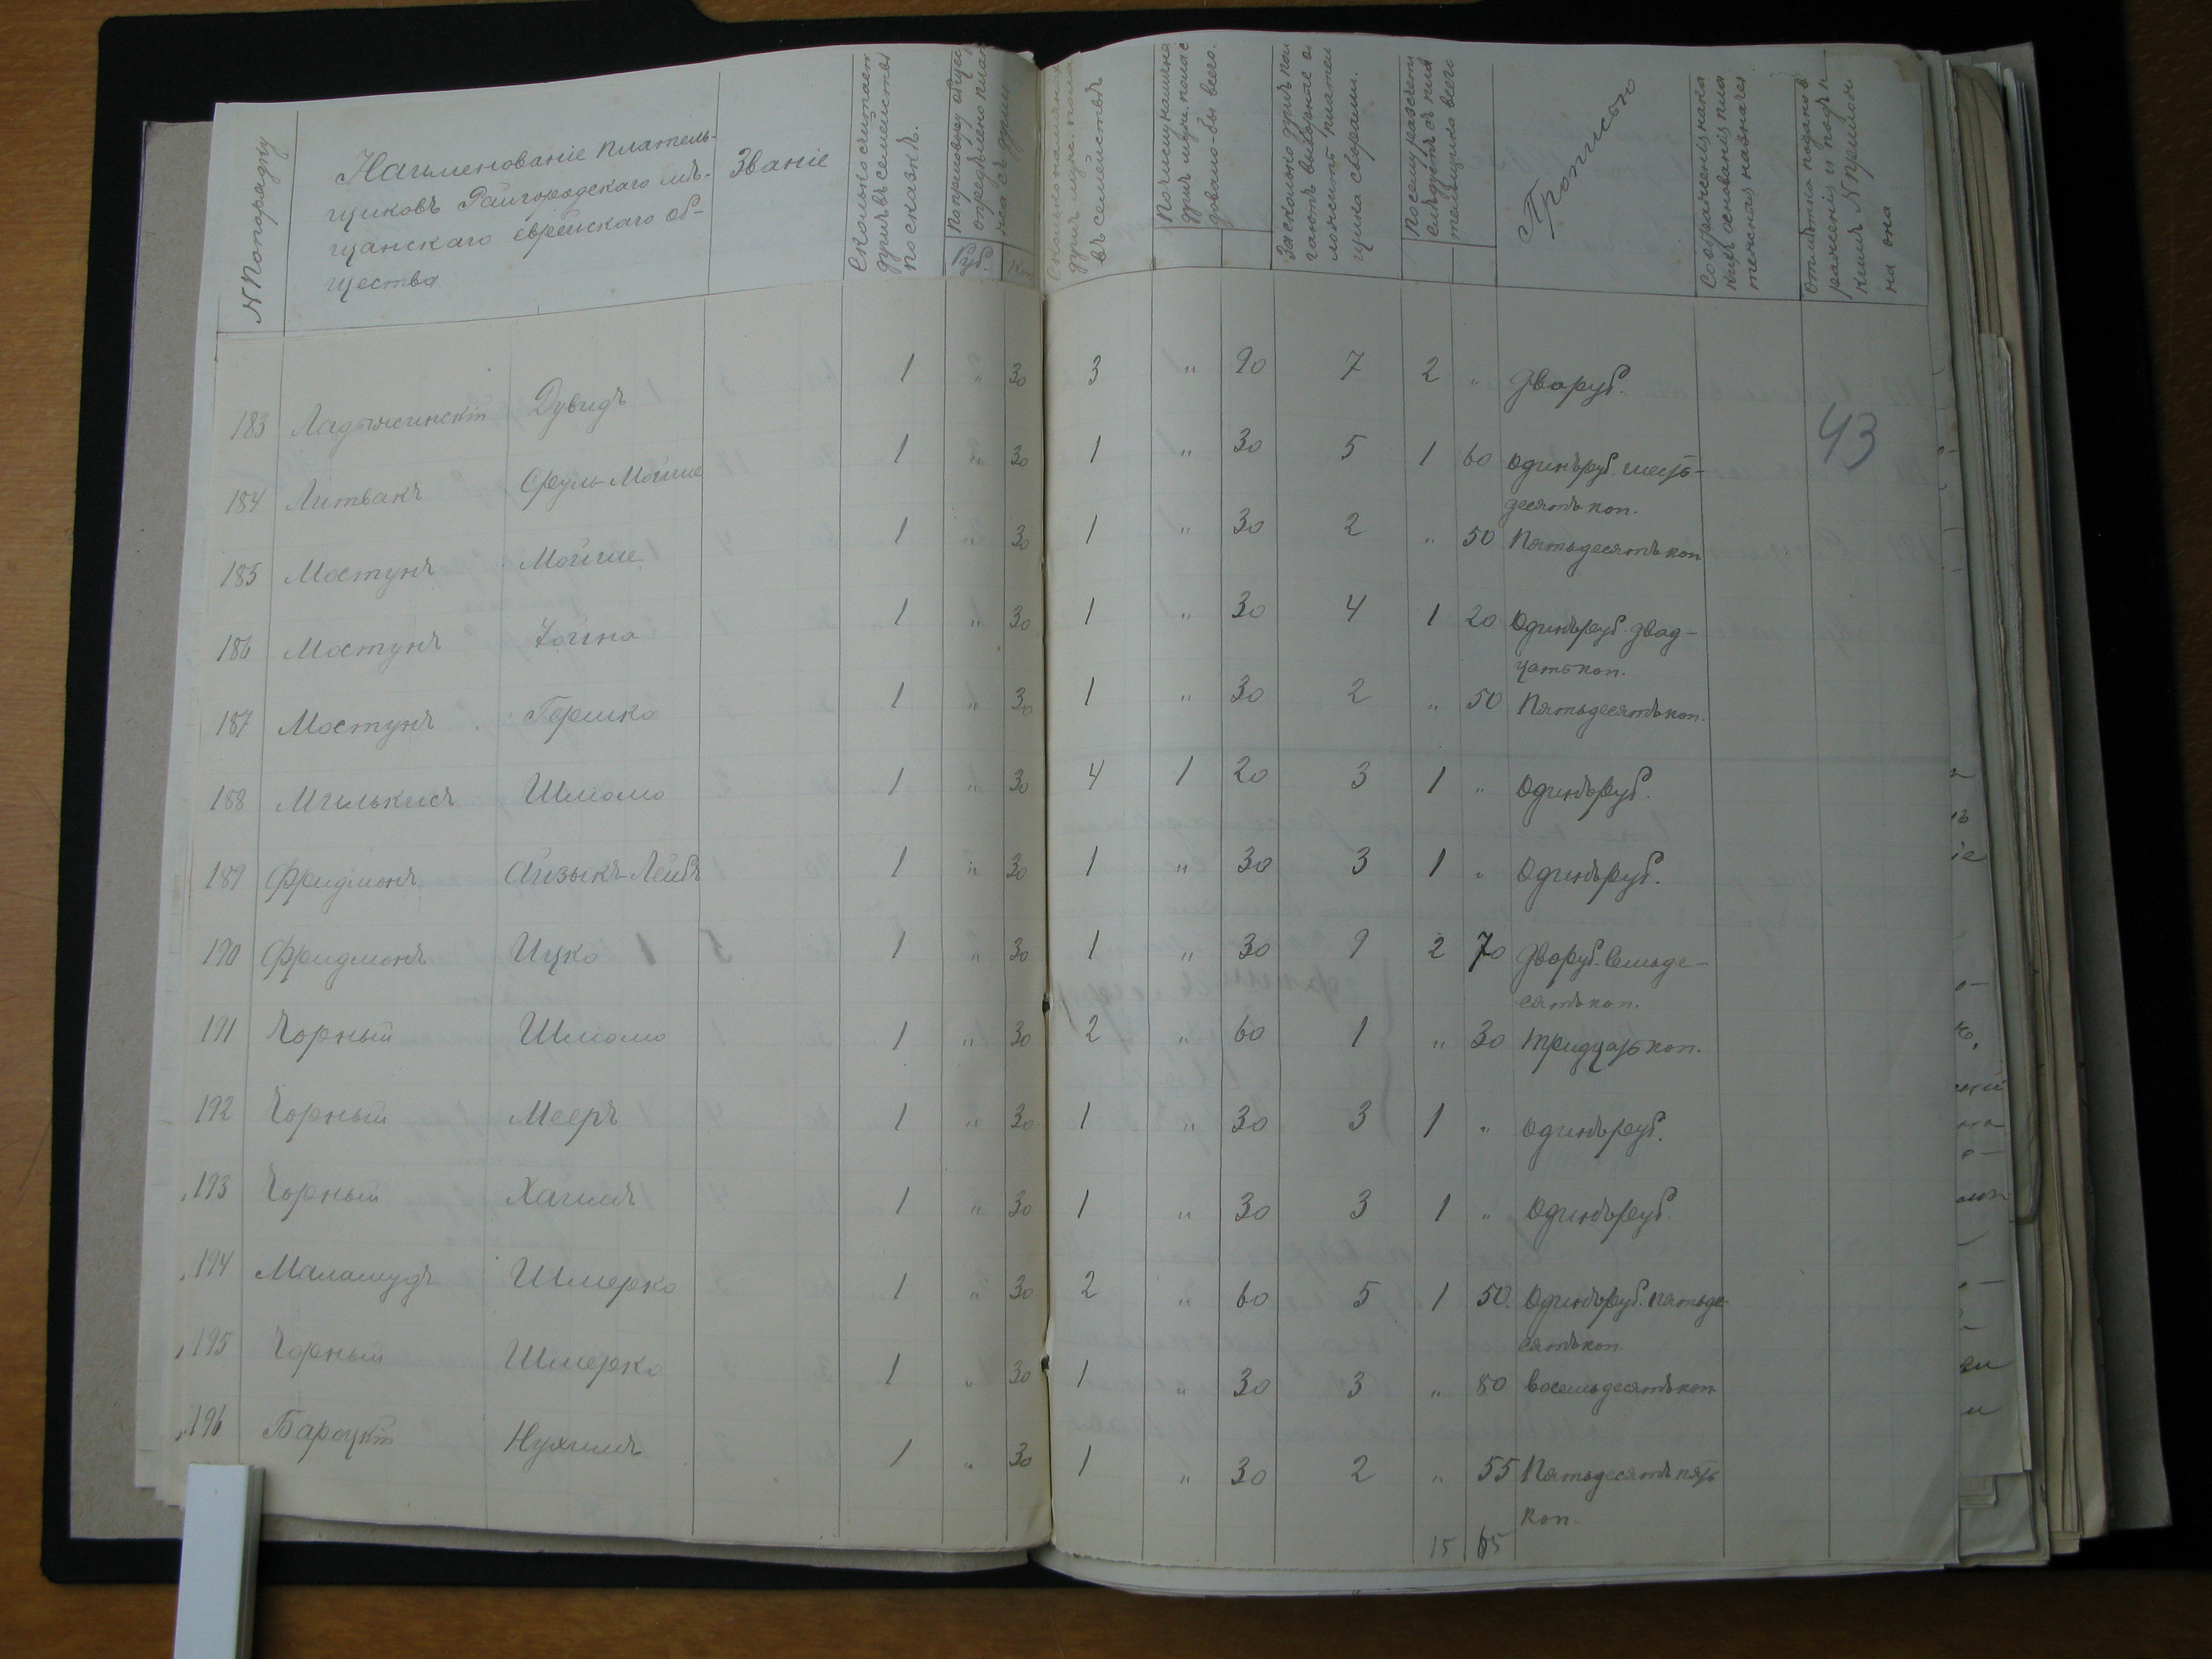 № по порядку
Наименованіе плательщиковъ Райгородскаго мѣщанскаго еврейскаго общества
Званіе
Сколько считается душъ въ семействѣ по сказкѣ.
Руб.
Коп
Сколько наличныхъ душъ
въ семействѣ
По числу наличныхъ душъ
довало-бы всего.
За сколько душъ
плательщика
Прописью
183 Ладыжинскій Дувидъ 1 " 30 3 " 90 7 2 " Два руб.
43
184 Литвакъ Сруль-Мойше 1 " 30 1 " 30 5 1 60 Одинъ руб. шесть-
десятъ коп.
185 Мостунъ Мойше 1 " 30 1 " 30 2 " 50 Пятьдесятъ коп
186 Мостунъ Хоина 1 " 30 1 " 30 4 1 20 Одинъ руб. двад-
цать коп.
187 Мостунъ Гершко 1 " 30 1 " 30 2 " 50 Пятьдесятъ коп.
188 Милькисъ Шліомо 1 " 30 4 1 20 3 1 " Одинъ руб.
189 Фридманъ Айзыкъ-Лейбъ 1 " 30 1 " 30 3 1 " Одинъ руб.
190 Фридманъ Ицко 1 " 30 1 " 30 9 2 70 Два руб. семьде-
сятъ коп.
191 Чорный Шліомо 1 " 30 2 " 60 1 " 30 Тридцать коп.
192 Чорный Мееръ 1 " 30 1 " 30 3 1 " Одинъ руб.
193 Чорный Хаимъ 1 " 30 1 " 30 3 1 " Одинъ руб.
194 Маламудъ Шмерко 1 " 30 2 " 60 5 1 50 Одинъ руб. пятьде-
сятъ коп
195 Чорный Шмерко 1 " 30 1 " 30 3 " 80 Восемьдесятъ коп
196 Бароцкій Нухимъ 1 " 30 1 " 30 2 " 55 Пятьдесятъ пять
коп.
15 65